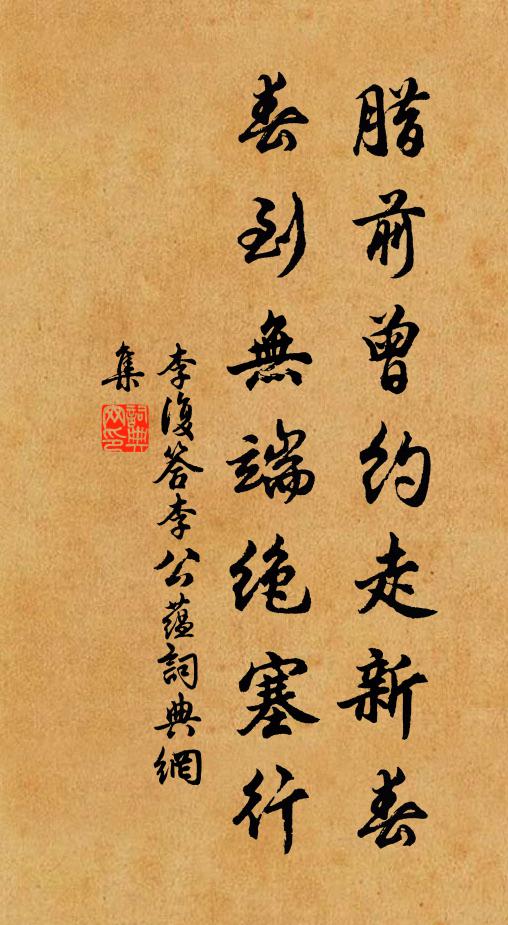 腊前曾约走新春
春到無端绝塞行
李復答李公蕴詞典網
集
詞典网印